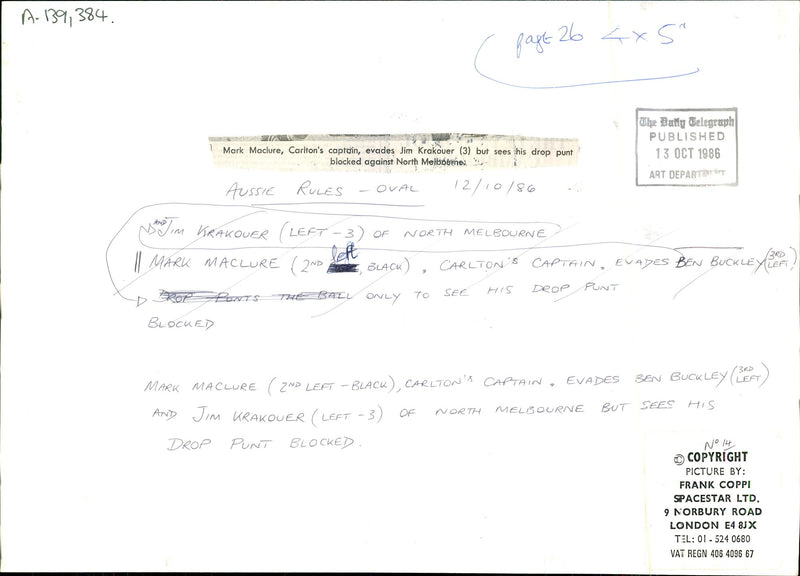 A-139,384.
page 26 4 x 5"
Mark Maclure, Carlton's captain, evades Jim Krakouer (3) but sees his drop punt
blocked against North Melbourne.
The Daily Telegraph
PUBLISHED
13 OCT 1986
ART DEPARTMENT
AUSSIE RULES - OVAL 12/10/86
AND JIM KRAKOUER (LEFT - 3) OF NORTH MELBOURNE
|| MARK MACLURE (2ND left, BLACK). CARLTON'S CAPTAIN. EVADES BEN BUCKLEY (3RD LEFT)
DROP PUNTS THE BALL ONLY TO SEE HIS DROP PUNT
BLOCKED
MARK MACLURE (2ND LEFT - BLACK), CARLTON'S CAPTAIN. EVADES BEN BUCKLEY (3RD LEFT)
AND JIM KRAKOUER (LEFT - 3) OF NORTH MELBOURNE BUT SEES HIS
DROP PUNT BLOCKED.
No 14
© COPYRIGHT
PICTURE BY:
FRANK COPPI
SPACESTAR LTD.
9 NORBURY ROAD
LONDON E4 8JX
TEL: 01 - 524 0680
VAT REGN 406 4096 67